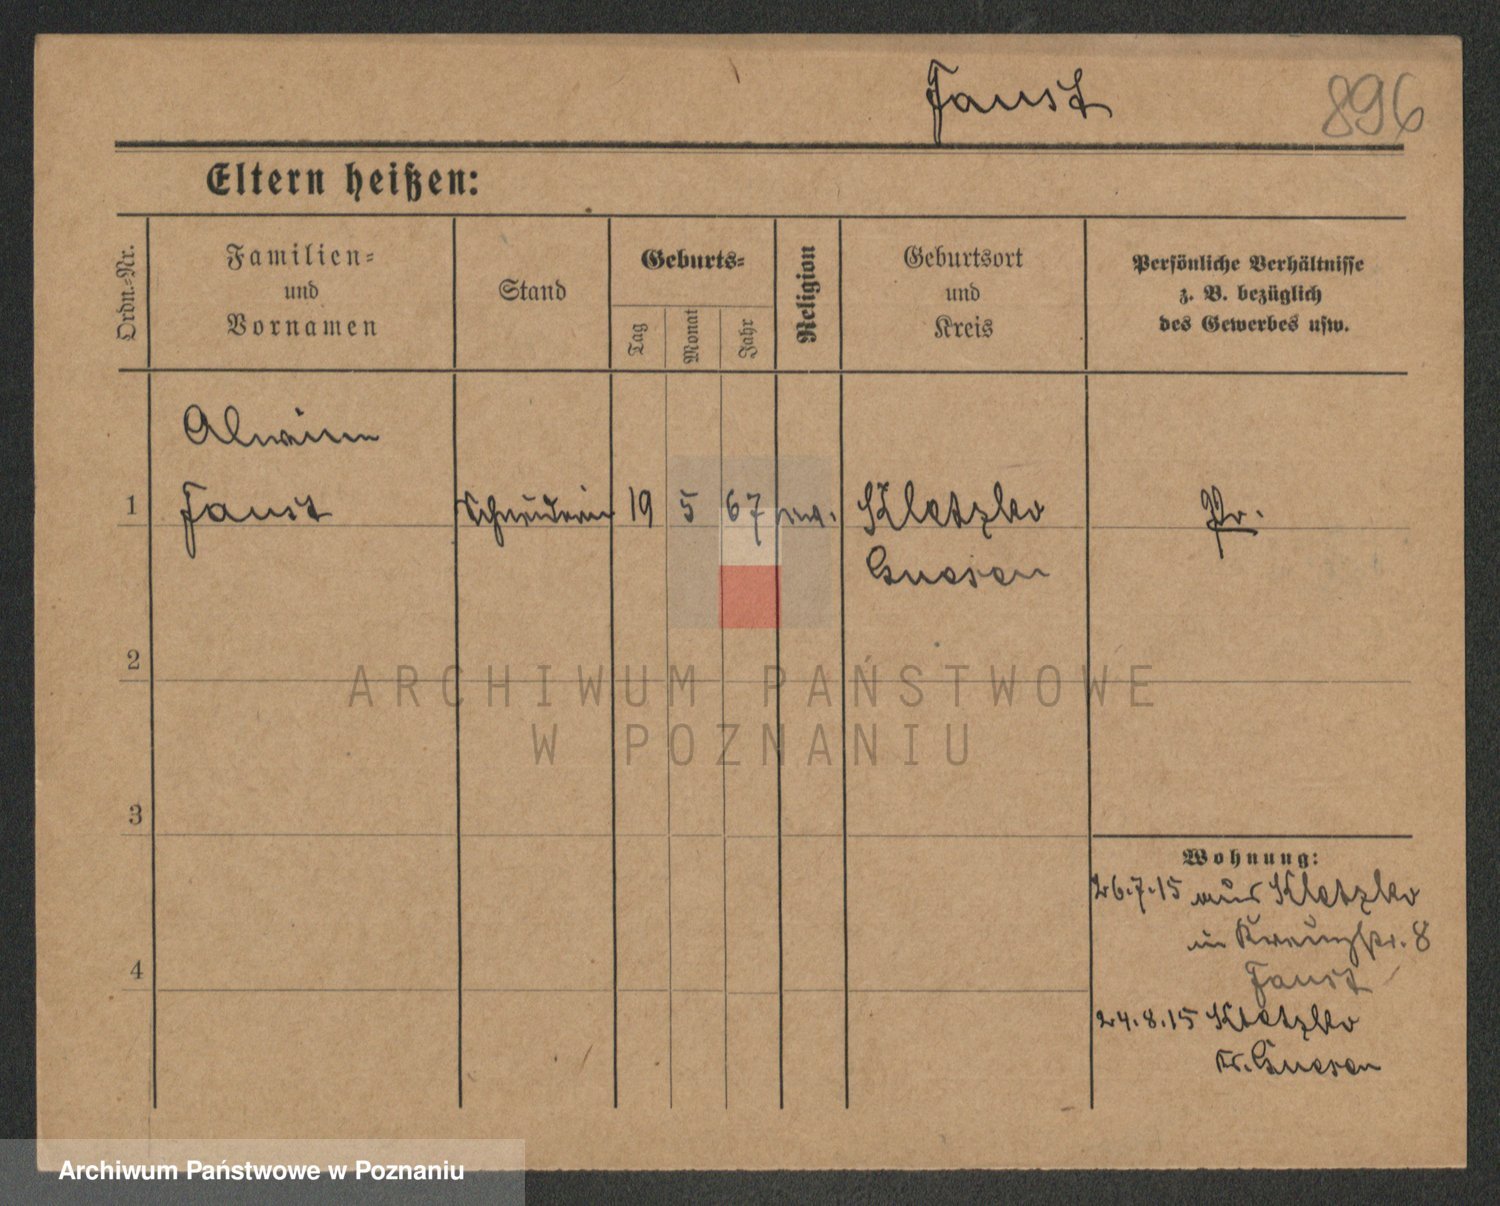 Faust
896
Eltern heißen:
Ordn.-Nr.
Familien-
und
Vornamen
Stand
Geburts-
Tag
Monat
Jahr
Religion
Geburtsort
und
Kreis
Persönliche Verhältnisse
z. B. bezüglich
des Gewerbes usw.
1
Alwine
Faust
Schneiderin
19
5
67
ev.
Kletzko
Gnesen
Pr.
2
ARCHIWUM PAŃSTWOWE
W POZNANIU
3
4
Wohnung:
26.7.15 aus Kletzko
in Kreuzstr. 8
Faust
24.8.15 Kletzko
Kr. Gnesen
Archiwum Państwowe w Poznaniu